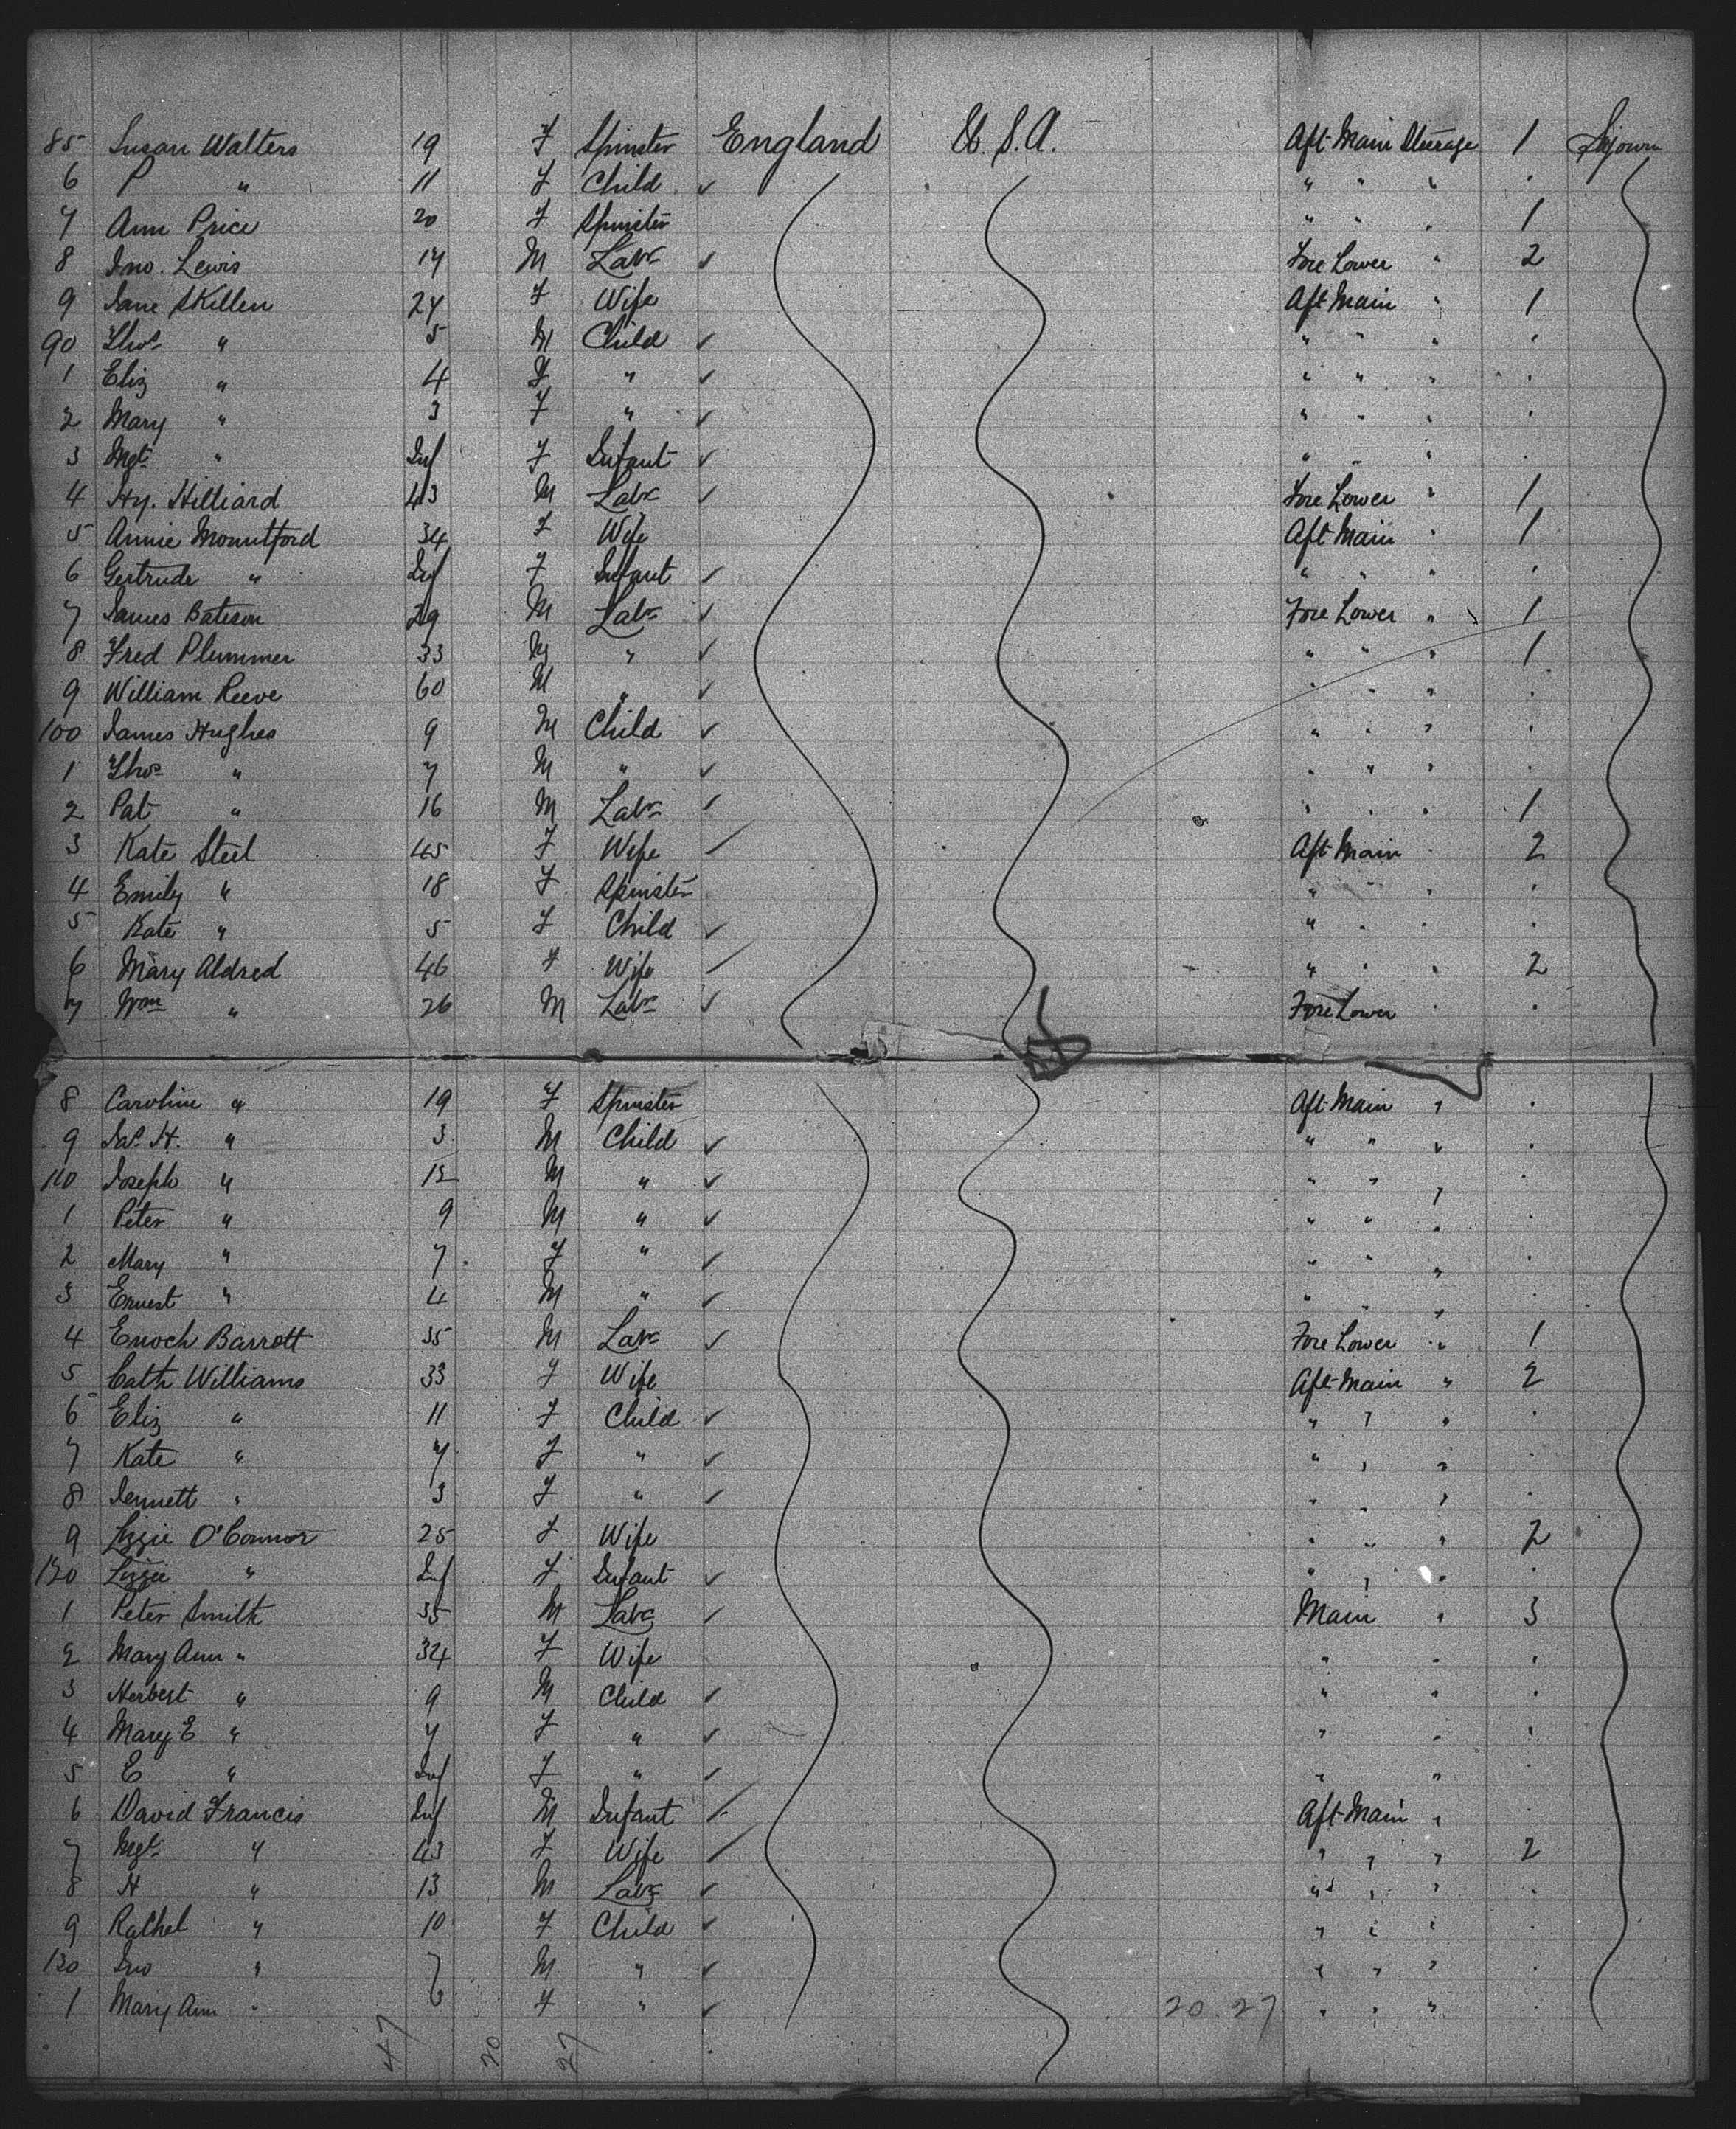 85 Susan Walters 19 F Spinster England U.S.A. Aft Main Steerage 1 Sojourn
6 P " 11 F Child ✓ " " " .
7 Ann Price 20 F Spinster " " . 1
8 Jno. Lewis 17 M Labr ✓ Fore Lower " 2
9 Jane Skillen 24 F Wife Aft Main " 1
90 Thos " 5 M Child ✓ " " " .
1 Eliz " 4 F " ✓ " " " .
2 Mary " 3 F " ✓ " " " .
3 Mgt " Inf F Infant ✓ " " " .
4 Hy. Hilliard 43 M Labr ✓ Fore Lower " 1
5 Annie Mountford 34 F Wife Aft Main " 1
6 Gertrude " Inf F Infant ✓ " " " .
7 James Bateson 29 M Labr ✓ Fore Lower " 1
8 Fred Plummer 33 M " ✓ " " " 1
9 William Reeve 60 M " ✓ " " " .
100 James Hughes 9 M Child ✓ " " " .
1 Thos " 7 M " ✓ " " " .
2 Pat " 16 M Labr ✓ " " " 1
3 Kate Steel 45 F Wife ✓ Aft Main " 2
4 Emily " 18 F Spinster " " " .
5 Kate " 5 F Child ✓ " " " .
6 Mary Aldred 46 F Wife ✓ " " " 2
7 Wm " 26 M Labr ✓ Fore Lower " .
8 Caroline " 19 F Spinster Aft Main " .
9 Jas. H. " 3 M Child ✓ " " " .
110 Joseph " 12 M " ✓ " " " .
1 Peter " 9 M " ✓ " " " .
2 Mary " 7 F " ✓ " " " .
3 Ernest " 4 M " ✓ " " " .
4 Enoch Barrott 35 M Labr ✓ Fore Lower " 1
5 Cath Williams 33 F Wife Aft Main " 2
6 Eliz " 11 F Child ✓ " " " .
7 Kate " 7 F " ✓ " " " .
8 Jennett " 3 F " ✓ " " " .
9 Lizzie O'Connor 25 F Wife " " " 2
120 Lizzie " Inf F Infant ✓ " " " .
1 Peter Smith 35 M Labr ✓ Main " 3
2 Mary Ann " 34 F Wife " " .
3 Herbert " 9 M Child ✓ " " .
4 Mary E " 7 F " ✓ " " .
5 E " Inf F " ✓ " " .
6 David Francis Inf M Infant ✓ Aft Main " .
7 Mgt " 43 F Wife ✓ " " " 2
8 H " 13 M Labr ✓ " " " .
9 Rachel " 10 F Child ✓ " " " .
130 Jno " 7 M " ✓ " " " .
1 Mary Ann " 6 F " ✓ 20.27 " " " .
47 20 27